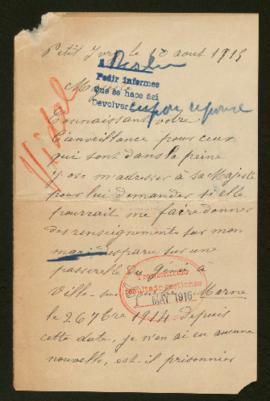 Petit Ivry le 12 août 1915
Berlin
Pedir informes
que se hace así
Devolver
cupon reponse
Vidal
Connaissant votre
bienveillance pour ceux
qui sont dans la peine
j'ose m'adresser à sa Majesté
pour lui demander si elle
pourrait me faire donner
des renseignements sur mon
mari disparu sur une
passerelle du génie à
Ville-sur-Marne
le 26 7bre 1914 depuis
cette date, je n'ai eu aucune
nouvelle, est-il prisonnier
MAY 1916